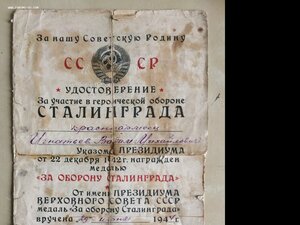 За нашу Советскую Родину
СС СР
УДОСТОВЕРЕНИЕ
За участие в героической обороне
СТАЛИНГРАДА
красноармеец
Игнатьев Вадим Михайлович
Указом ПРЕЗИДИУМА
от 22 декабря 1942 г. награжден
медалью
«ЗА ОБОРОНУ СТАЛИНГРАДА»
От имени ПРЕЗИДИУМА
ВЕРХОВНОГО СОВЕТА СССР
медаль «За оборону Сталинграда»
вручена 194